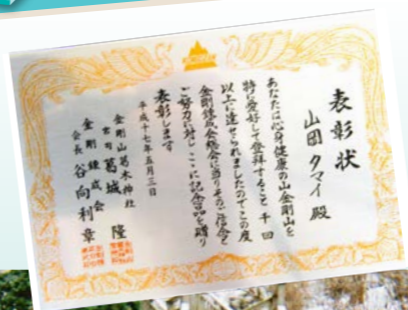 表彰状
山田タマイ殿
あなたは心身健康の山金剛山を
特に愛好して登拝すること千回
以上に達せられましたのでこの度
金剛錬成会総会に当りそのご信念と
ご努力に対しここに記念品を贈り
表彰します
平成十七年五月三日
金剛山葛木神社
宮司 葛城 隆
金剛錬成会
会長 谷向利章